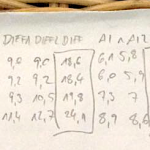 DIFFA DIFFZ DIFF A1 n A12
9,0 9,0 18,6 6,1 5,8
9,2 9,2 18,4 6,0 5,9
9,3 10,5 19,8 7,3 7
11,4 12,7 24,1 8,9